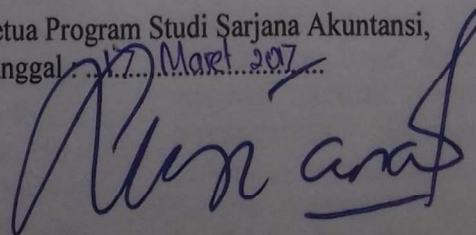 etua Program Studi Sarjana Akuntansi,
nggal : 17 Maret 2017